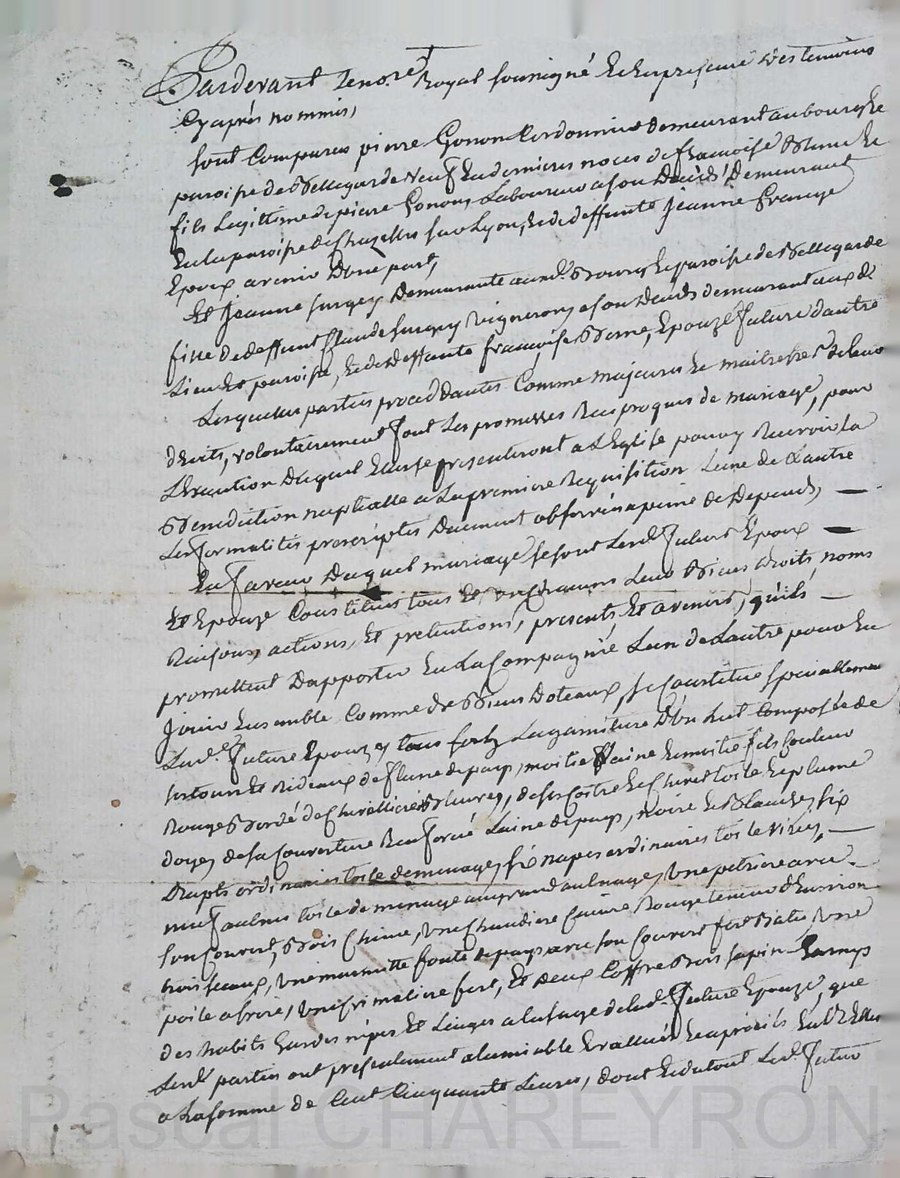 Pardevant Le no.re Royal soussigné Et En presence des temoins
Cy aprés nommés,
sont Comparus pierre Gonon Cordonnier demeurant au bourg Et
paroisse de Bellegarde veuf En dernieres noces de francoise Blanc Et
fils Legitime de pierre Gonon, Laboureur a son Décés Demeurant
En la paroisse de Chazelles sur Lyon, Et de deffunte Jeanne france
Epoux avenir D'une part,
Et Jeanne surgey Demeurante aud. Bourg Et paroisse de Bellegarde
fille de deffunt Claude surgey vigneron, a son Décés demeurant aux d.
Lieu Et paroisse, Et de Deffunte francoise Berne, Epouze future d'autre
Lesquelles parties procédantes Comme majeures Et maitresses De leurs
droits, volontairement font Les promesses Reciproques de mariage, pour
L'Exaution Duquel Elles se presenteront a L'Eglise pour y Recevoir La
Benediction nuptialle a La premiere Requisition L'une de L'autre
Les formalités prescriptes Duement observées a peine de Depends,
En faveur Duquel mariage se sont Lesd. futurs Epoux
Et Epouze Constitués tous Et un Chacuns Leurs Biens droits noms
Raisons, actions, Et pretentions, presents Et avenirs, qu'ils
promettent D'apporter En La Compagnie L'un de L'autre pour En
Jouir Ensemble Comme de Biens Doteaux, se Constitue specialement
Lad. future Epouze, La garniture D'un Lit Composée de
ses tours Et Rideaux de de pays, moitie Laine Et moitie fils Couleur
Rouge Bordé de Bleues, de sa Coitre Et Chevet toile Et plume
d'oyes, de sa Couverture Laine de pays, noire Et Blanche, six
Draps ordinaires toile de menage, six napes ordinaires toile
neuf aulnes toile de menage au grand aulnage, une petriere avec
son Couvert, Bois Chene, une Chaudiere Cuivre Rouge teneur D'Environ
trois seaux, une marmitte fonte de pays avec son Couvert fer Batu, une
poile a frire, une Crimaliere fert, Et deux Coffres Bois sapin Garnys
des habits hardes nipes Et Linges a L'usage de Lad. future Epouze, que
Lesd. parties ont presentement a L'amiable Evallués Et apreciés
a La somme de Cent Cinquante Livres, dont Et du tout Led. futur
Pascal CHAREYRON